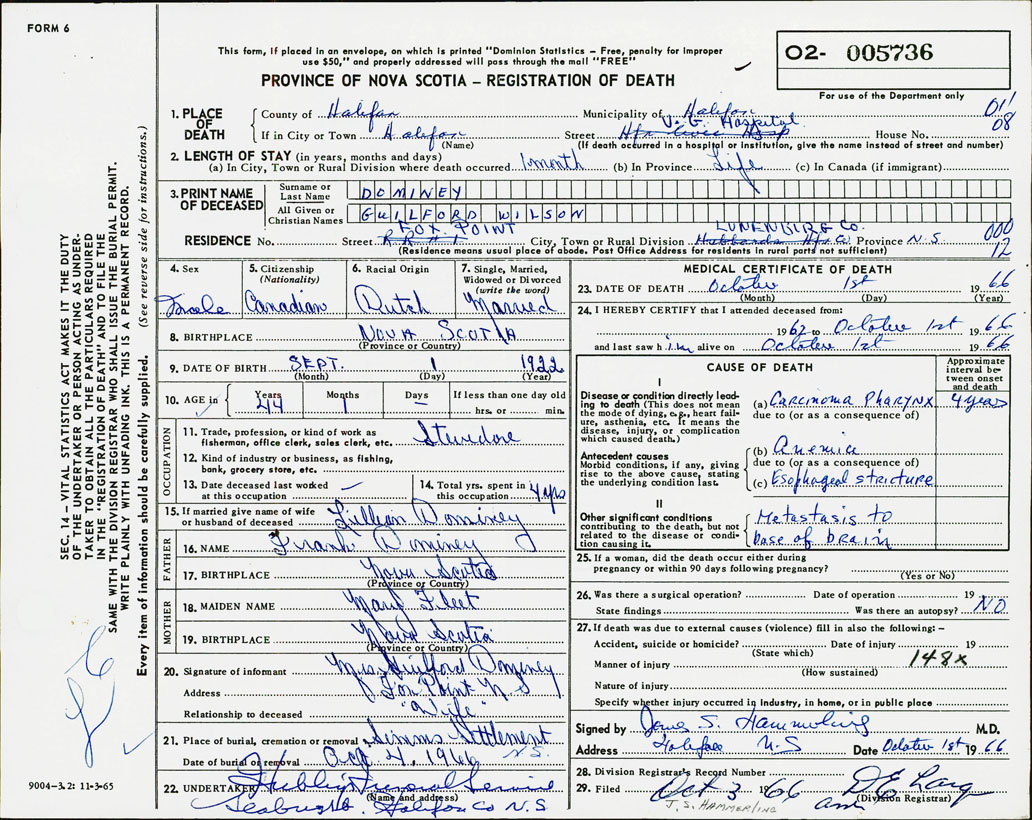 FORM 6
This form, if placed in an envelope, on which is printed "Dominion Statistics – Free, penalty for improper
use $50," and properly addressed will pass through the mail "FREE"
PROVINCE OF NOVA SCOTIA – REGISTRATION OF DEATH
O2- 005736
For use of the Department only
SEC. 14 – VITAL STATISTICS ACT MAKES IT THE DUTY
OF THE UNDERTAKER OR PERSON ACTING AS UNDER-
TAKER TO OBTAIN ALL THE PARTICULARS REQUIRED
IN THE "REGISTRATION OF DEATH" AND TO FILE THE
SAME WITH THE DIVISION REGISTRAR WHO SHALL ISSUE THE BURIAL PERMIT.
WRITE PLAINLY WITH UNFADING INK. THIS IS A PERMANENT RECORD.
Every item of information should be carefully supplied. (See reverse side for instructions.)
1. PLACE OF DEATH
County of Halifax Municipality of Halifax 011
V. G. Hospital 08
If in City or Town Halifax Street House No.
(Name) (If death occurred in a hospital or institution, give the name instead of street and number)
2. LENGTH OF STAY (in years, months and days)
(a) In City, Town or Rural Division where death occurred 1 month (b) In Province Life (c) In Canada (if immigrant)
3. PRINT NAME OF DECEASED
Surname or Last Name DOMINEY
All Given or Christian Names GUILFORD WILSON
FOX POINT LUNENBURG Co. 000
RESIDENCE No. Street RR#1 City, Town or Rural Division Hubbards Hfx Co Province N.S. 12
(Residence means usual place of abode. Post Office Address for residents in rural parts not sufficient)
4. Sex Male
5. Citizenship (Nationality) Canadian
6. Racial Origin Dutch
7. Single, Married, Widowed or Divorced (write the word) Married
8. BIRTHPLACE NOVA SCOTIA
(Province or Country)
9. DATE OF BIRTH SEPT. 1 1922
(Month) (Day) (Year)
10. AGE in Years 44 Months 1 Days – If less than one day old hrs. or min.
OCCUPATION
11. Trade, profession, or kind of work as
fisherman, office clerk, sales clerk, etc. Stevedore
12. Kind of industry or business, as fishing,
bank, grocery store, etc.
13. Date deceased last worked at this occupation –
14. Total yrs. spent in this occupation 4 yrs
15. If married give name of wife
or husband of deceased Lillian Dominey
FATHER
16. NAME Frank Dominey
17. BIRTHPLACE Nova Scotia
(Province or Country)
MOTHER
18. MAIDEN NAME Mary Fleet
19. BIRTHPLACE Nova Scotia
(Province or Country)
20. Signature of informant Mrs Guilford Dominey
Address Fox Point N.S
Relationship to deceased "Wife"
21. Place of burial, cremation or removal Simms Settlement
N.S.
Date of burial or removal 4, 1966
22. UNDERTAKER Funeral Service
(Name and address)
Seabright. Halifax Co N.S
9004-3.2: 11-3-65
MEDICAL CERTIFICATE OF DEATH
23. DATE OF DEATH October 1st 1966
(Month) (Day) (Year)
24. I HEREBY CERTIFY that I attended deceased from:
1962 to October 1st 1966
and last saw him alive on October 1st 1966
CAUSE OF DEATH
Approximate interval between onset and death
I
Disease or condition directly lead-
ing to death (This does not mean
the mode of dying, e.g., heart fail-
ure, asthenia, etc. It means the
disease, injury, or complication
which caused death.)
(a) Carcinoma Pharynx 4 years
due to (or as a consequence of)
Antecedent causes
Morbid conditions, if any, giving
rise to the above cause, stating
the underlying condition last.
(b) Anemia
due to (or as a consequence of)
(c) Esophageal stricture
II
Other significant conditions
contributing to the death, but not
related to the disease or condi-
tion causing it.
Metastasis to
base of brain
25. If a woman, did the death occur either during
pregnancy or within 90 days following pregnancy?
(Yes or No)
26. Was there a surgical operation? Date of operation 19
State findings Was there an autopsy? NO
27. If death was due to external causes (violence) fill in also the following: –
Accident, suicide or homicide? Date of injury 19
(State which)
Manner of injury 148x
(How sustained)
Nature of injury
Specify whether injury occurred in industry, in home, or in public place
Signed by S. Hammerling M.D.
Address Halifax N.S Date October 1st 1966
28. Division Registrar's Record Number
29. Filed Oct 3 1966
(Division Registrar)
J.S. HAMMERLING